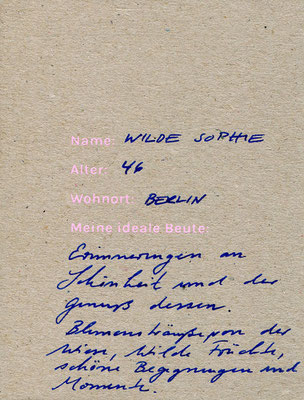 Name: WILDE SOPHIE
Alter: 46
Wohnort: BERLIN
Meine ideale Beute:
Erinnerungen an
Schönheit und der
genuß dessen.
Blumensträuße von der
Wiese, wilde Früchte,
schöne Begegnungen und
Momente.